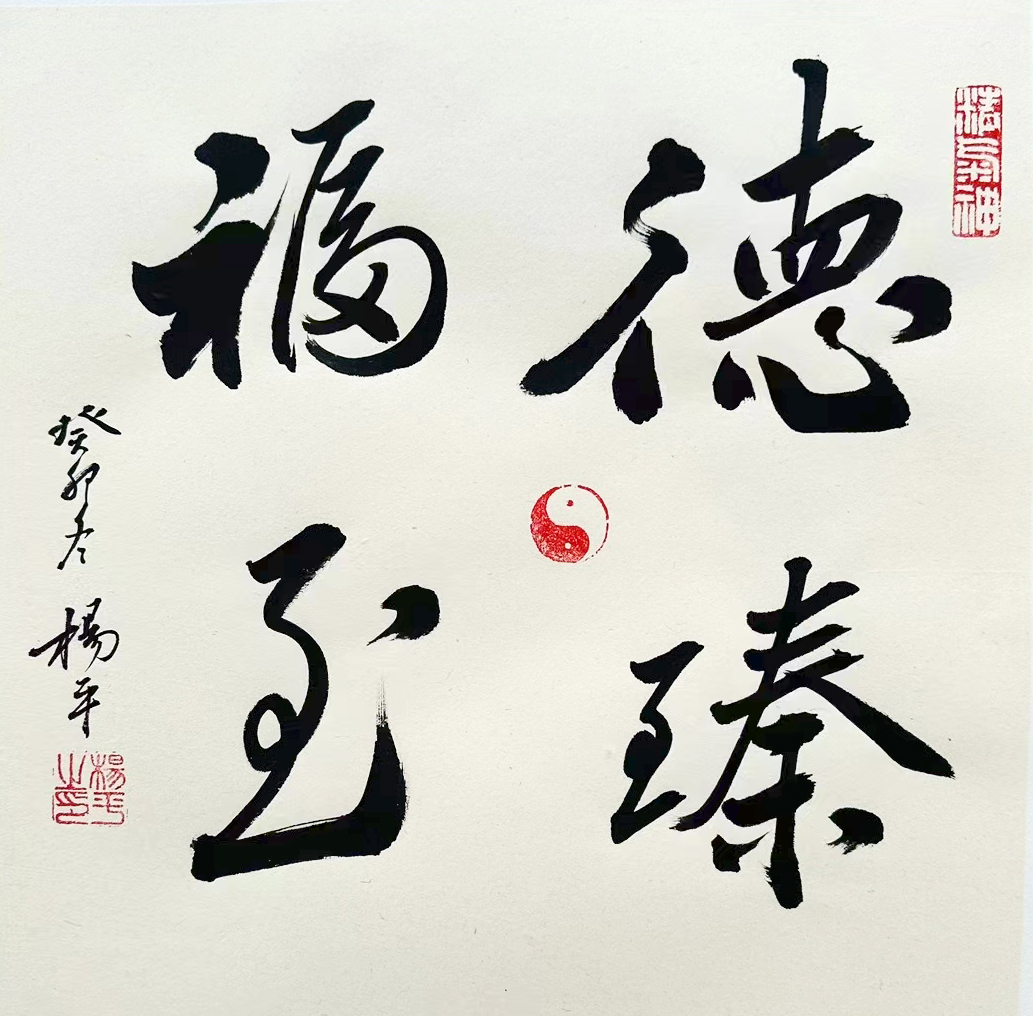 德臻
福至
癸卯冬 楊平
精氣神
楊平之印